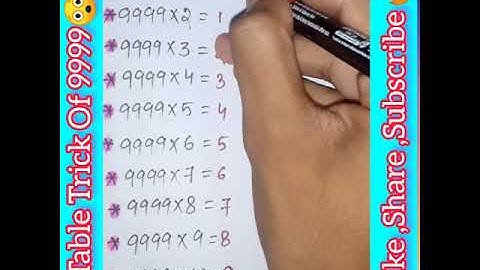 Table Trick Of 9999
* 9999 × 2 = 1
* 9999 × 3 =
* 9999 × 4 = 3
* 9999 × 5 = 4
* 9999 × 6 = 5
* 9999 × 7 = 6
* 9999 × 8 = 7
* 9999 × 9 = 8
ke ,Share ,Subscribe